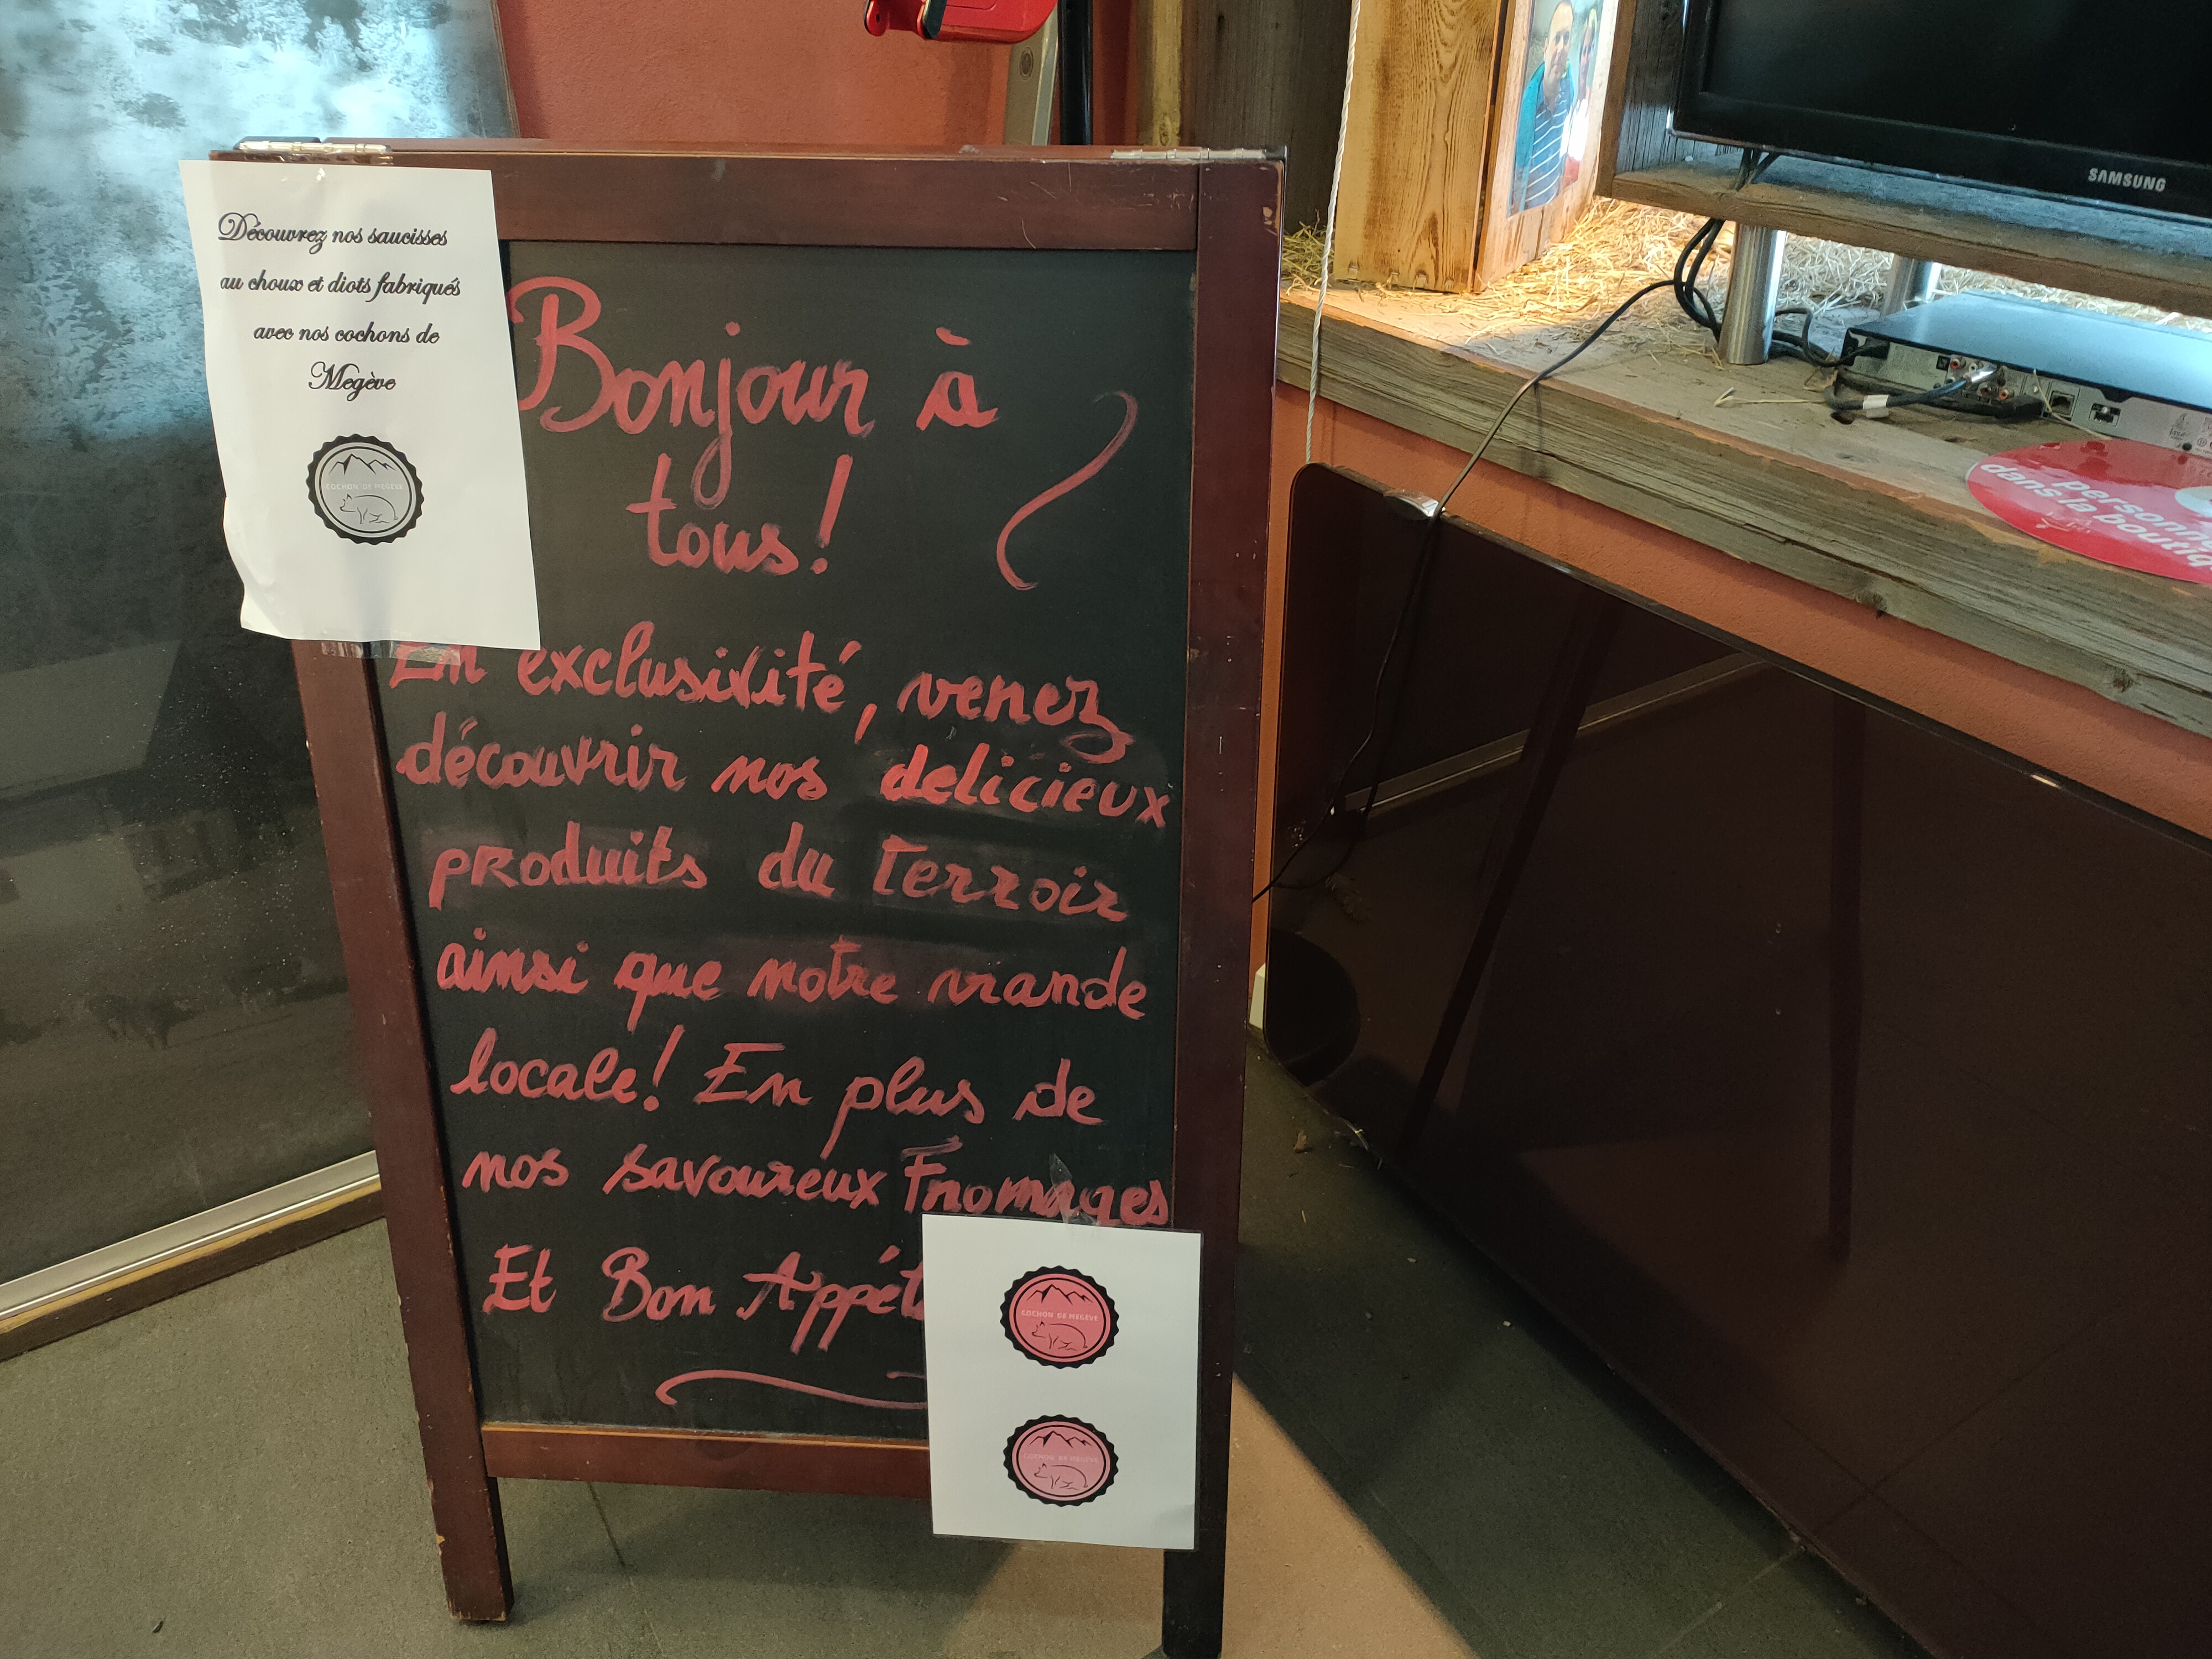 Découvrez nos saucisses
au choux et diots fabriqués
avec nos cochons de
Megève
COCHON DE MEGÈVE
Bonjour à
tous!
En exclusivité, venez
découvrir nos delicieux
produits du Terroir
ainsi que notre viande
locale! En plus de
nos savoureux Fromages
Et Bon Appét
COCHON DE MEGÈVE
COCHON DE MEGÈVE
SAMSUNG
dans la